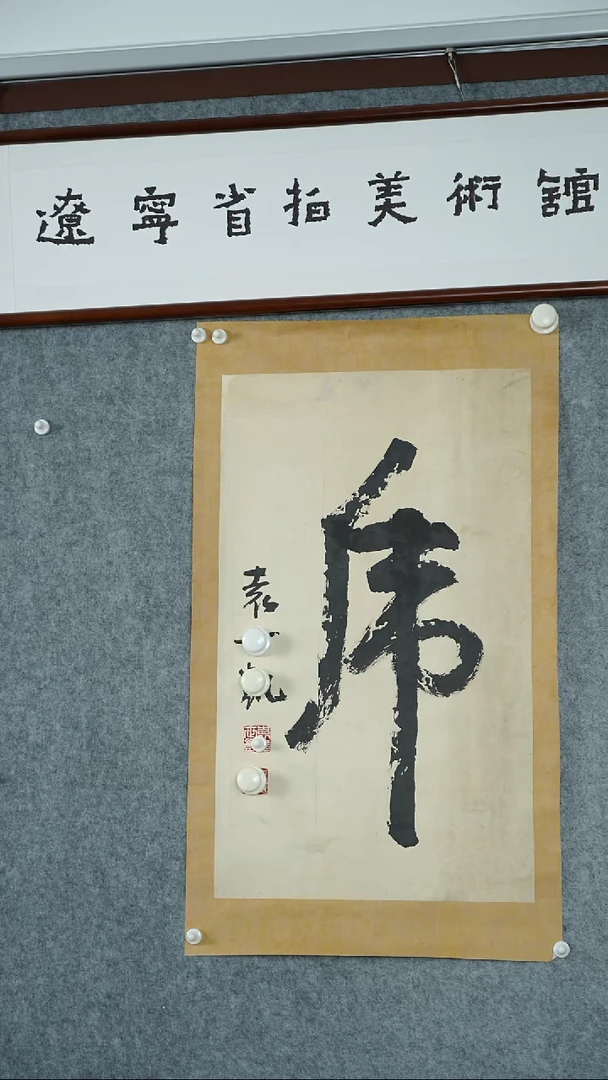 遼寧省拍美術館
虎
袁